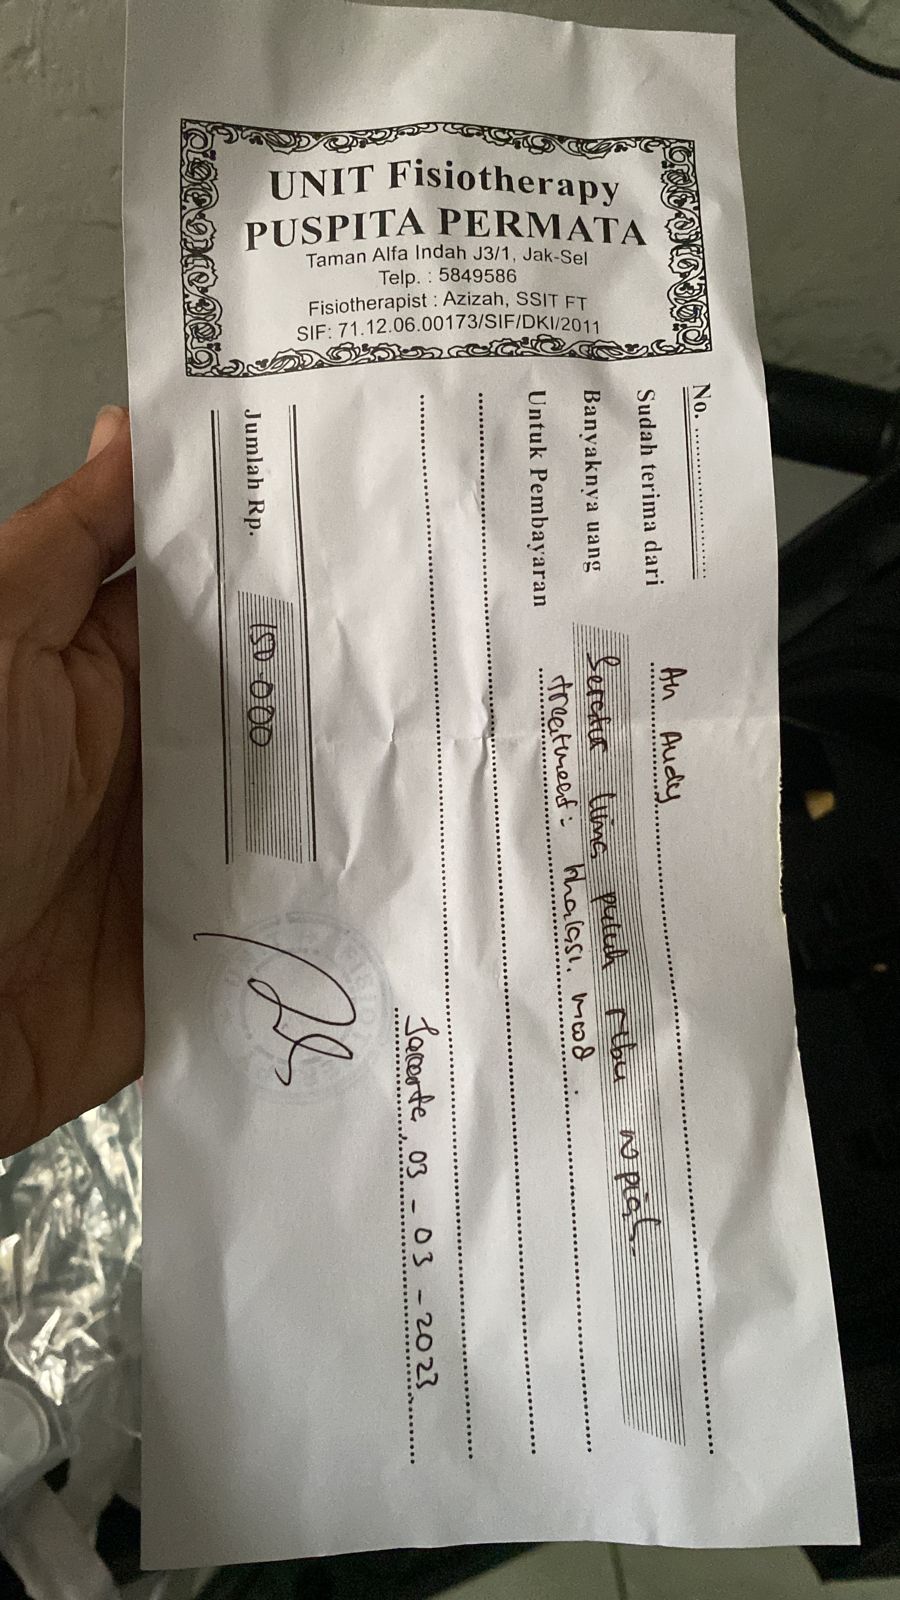 UNIT Fisiotherapy
PUSPITA PERMATA
Taman Alfa Indah J3/1, Jak-Sel
Telp. : 5849586
Fisiotherapist : Azizah, SSIT FT
SIF: 71.12.06.00173/SIF/DKI/2011
No. ....................
Sudah terima dari An Audy
Banyaknya uang Seratus lima puluh ribu rupiah
Untuk Pembayaran treatment : Inhalasi,
Jakarta, 03 - 03 - 2023
Jumlah Rp. 150.000